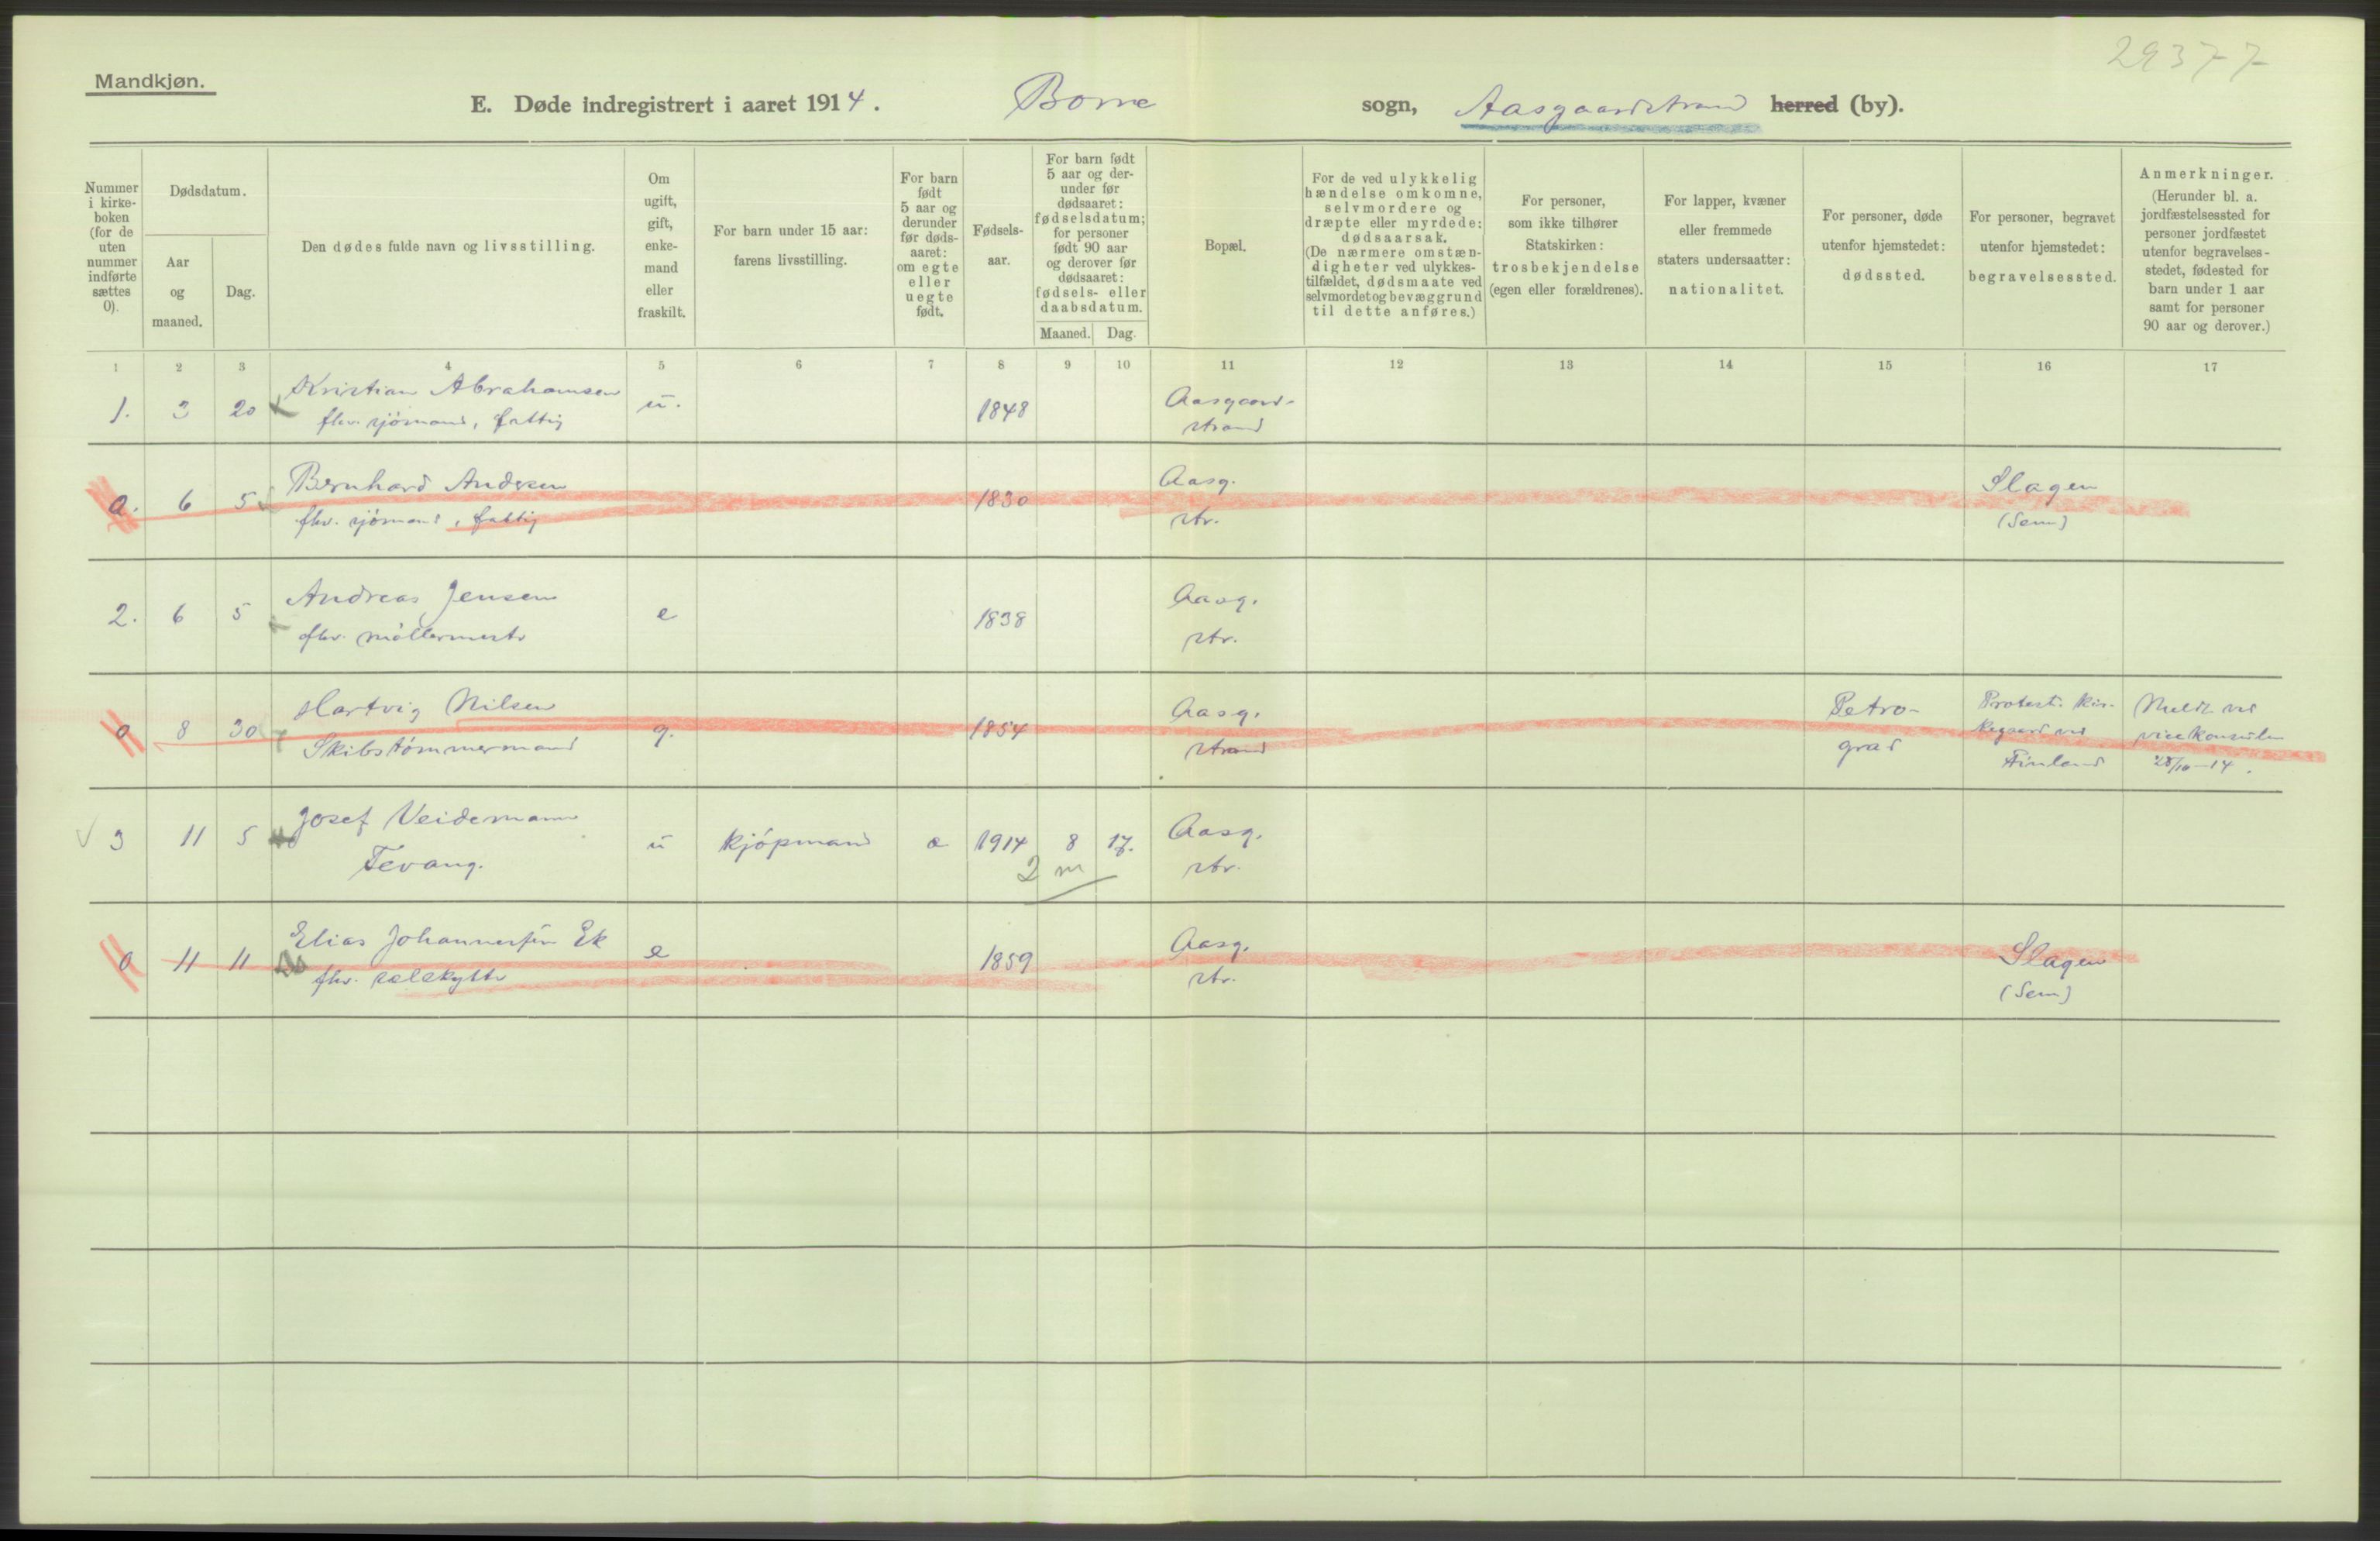 29377
Mandkjøn.
E. Døde indregistrert i aaret 1914. Borre sogn, Aasgaardstrand herred (by).
Nummer
i kirke-
boken
(for de
uten
nummer
indførte
sættes
0).
Dødsdatum.
Aar
og
maaned.
Dag.
Den dødes fulde navn og livsstilling.
Om
ugift,
gift,
enke-
mand
eller
fraskilt.
For barn under 15 aar:
farens livsstilling.
For barn
født
5 aar og
derunder
før døds-
aaret:
om egte
eller
uegte
født.
Fødsels-
aar.
For barn født
5 aar og der-
under før
dødsaaret:
fødselsdatum;
for personer
født 90 aar
og derover før
dødsaaret:
fødsels- eller
daabsdatum.
Maaned. Dag.
Bopæl.
For de ved ulykkelig
hændelse omkomne,
selvmordere og
dræpte eller myrdede:
dødsaarsak.
(De nærmere omstæn-
digheter ved ulykkes-
tilfældet, dødsmaate ved
selvmordet og bevæggrund
til dette anføres.)
For personer,
som ikke tilhører
Statskirken:
trosbekjendelse
(egen eller forældrenes).
For lapper, kvæner
eller fremmede
staters undersaatter:
nationalitet.
For personer, døde
utenfor hjemstedet:
dødssted.
For personer, begravet
utenfor hjemstedet:
begravelsessted.
Anmerkninger.
(Herunder bl. a.
jordfæstelsessted for
personer jordfæstet
utenfor begravelses-
stedet, fødested for
barn under 1 aar
samt for personer
90 aar og derover.)
1 2 3 4 5 6 7 8 9 10 11 12 13 14 15 16 17
1. 3 20 Kristian Abrahamsen u. 1848 Aasgaard-
fhv. sjömand, fattig strand
0. 6 5 Bernhard Andersen 1830 Aasg. Slagen
fhv. sjömand, fattig str. (Sem)
2. 6 5 Andreas Jensen e 1838 Aasg.
fhv. möllermestr str.
0 8 30 Hartvig Nilsen g. 1854 Aasg. Petro- Protest. kir- Meldt ved
Skibstömmermand strand grad kegaard ved vicekonsulen
Finland 28/10-14.
3 11 5 Josef Veidemann u kjöpmand e 1914 8 17. Aasg.
Tevang. 2 m str.
0 11 11 Elias Johannessen Ek e 1859 Aasg. Slagen
fhv. selskytter str. (Sem)